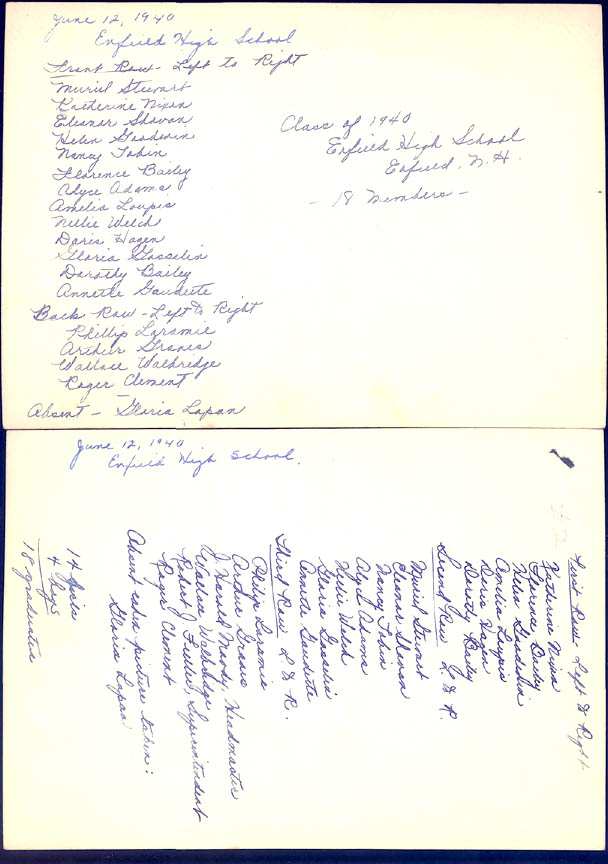 June 12, 1940
Enfield High School
Front Row - Left to Right
Muriel Stewart
Katherine Nixon
Eleanor Shovan
Helen Goodwin
Nancy Tobin
Florence Bailey
Alyce Adams
Amelia Loupis
Nellie Welch
Doris Hagen
Gloria Gosselin
Dorothy Bailey
Annette Gaudette
Back Row - Left to Right
Phillip Laramie
Arthur Graves
Wallace Walbridge
Roger Clement
Absent - Gloria Lapan
Class of 1940
Enfield High School
Enfield, N.H.
- 18 Members -
June 12, 1940
Enfield High School.
First Row Left to Right
Katherine Nixon
Florence Bailey
Helen Goodwin
Amelia Loupis
Doris Hagen
Dorothy Bailey
Second Row L to R.
Muriel Stewart
Eleanor Shovan
Nancy Tobin
Alyce Adams
Nellie Welch
Gloria Gosselin
Annette Gaudette
Third Row L to R.
Philip Laramie
Arthur Graves
J. Harold Moody, Headmaster
Wallace Walbridge
Robert J. Superintendent
Roger Clement
Absent when picture taken:
Gloria Lapan
14 girls
4 boys
18 graduates